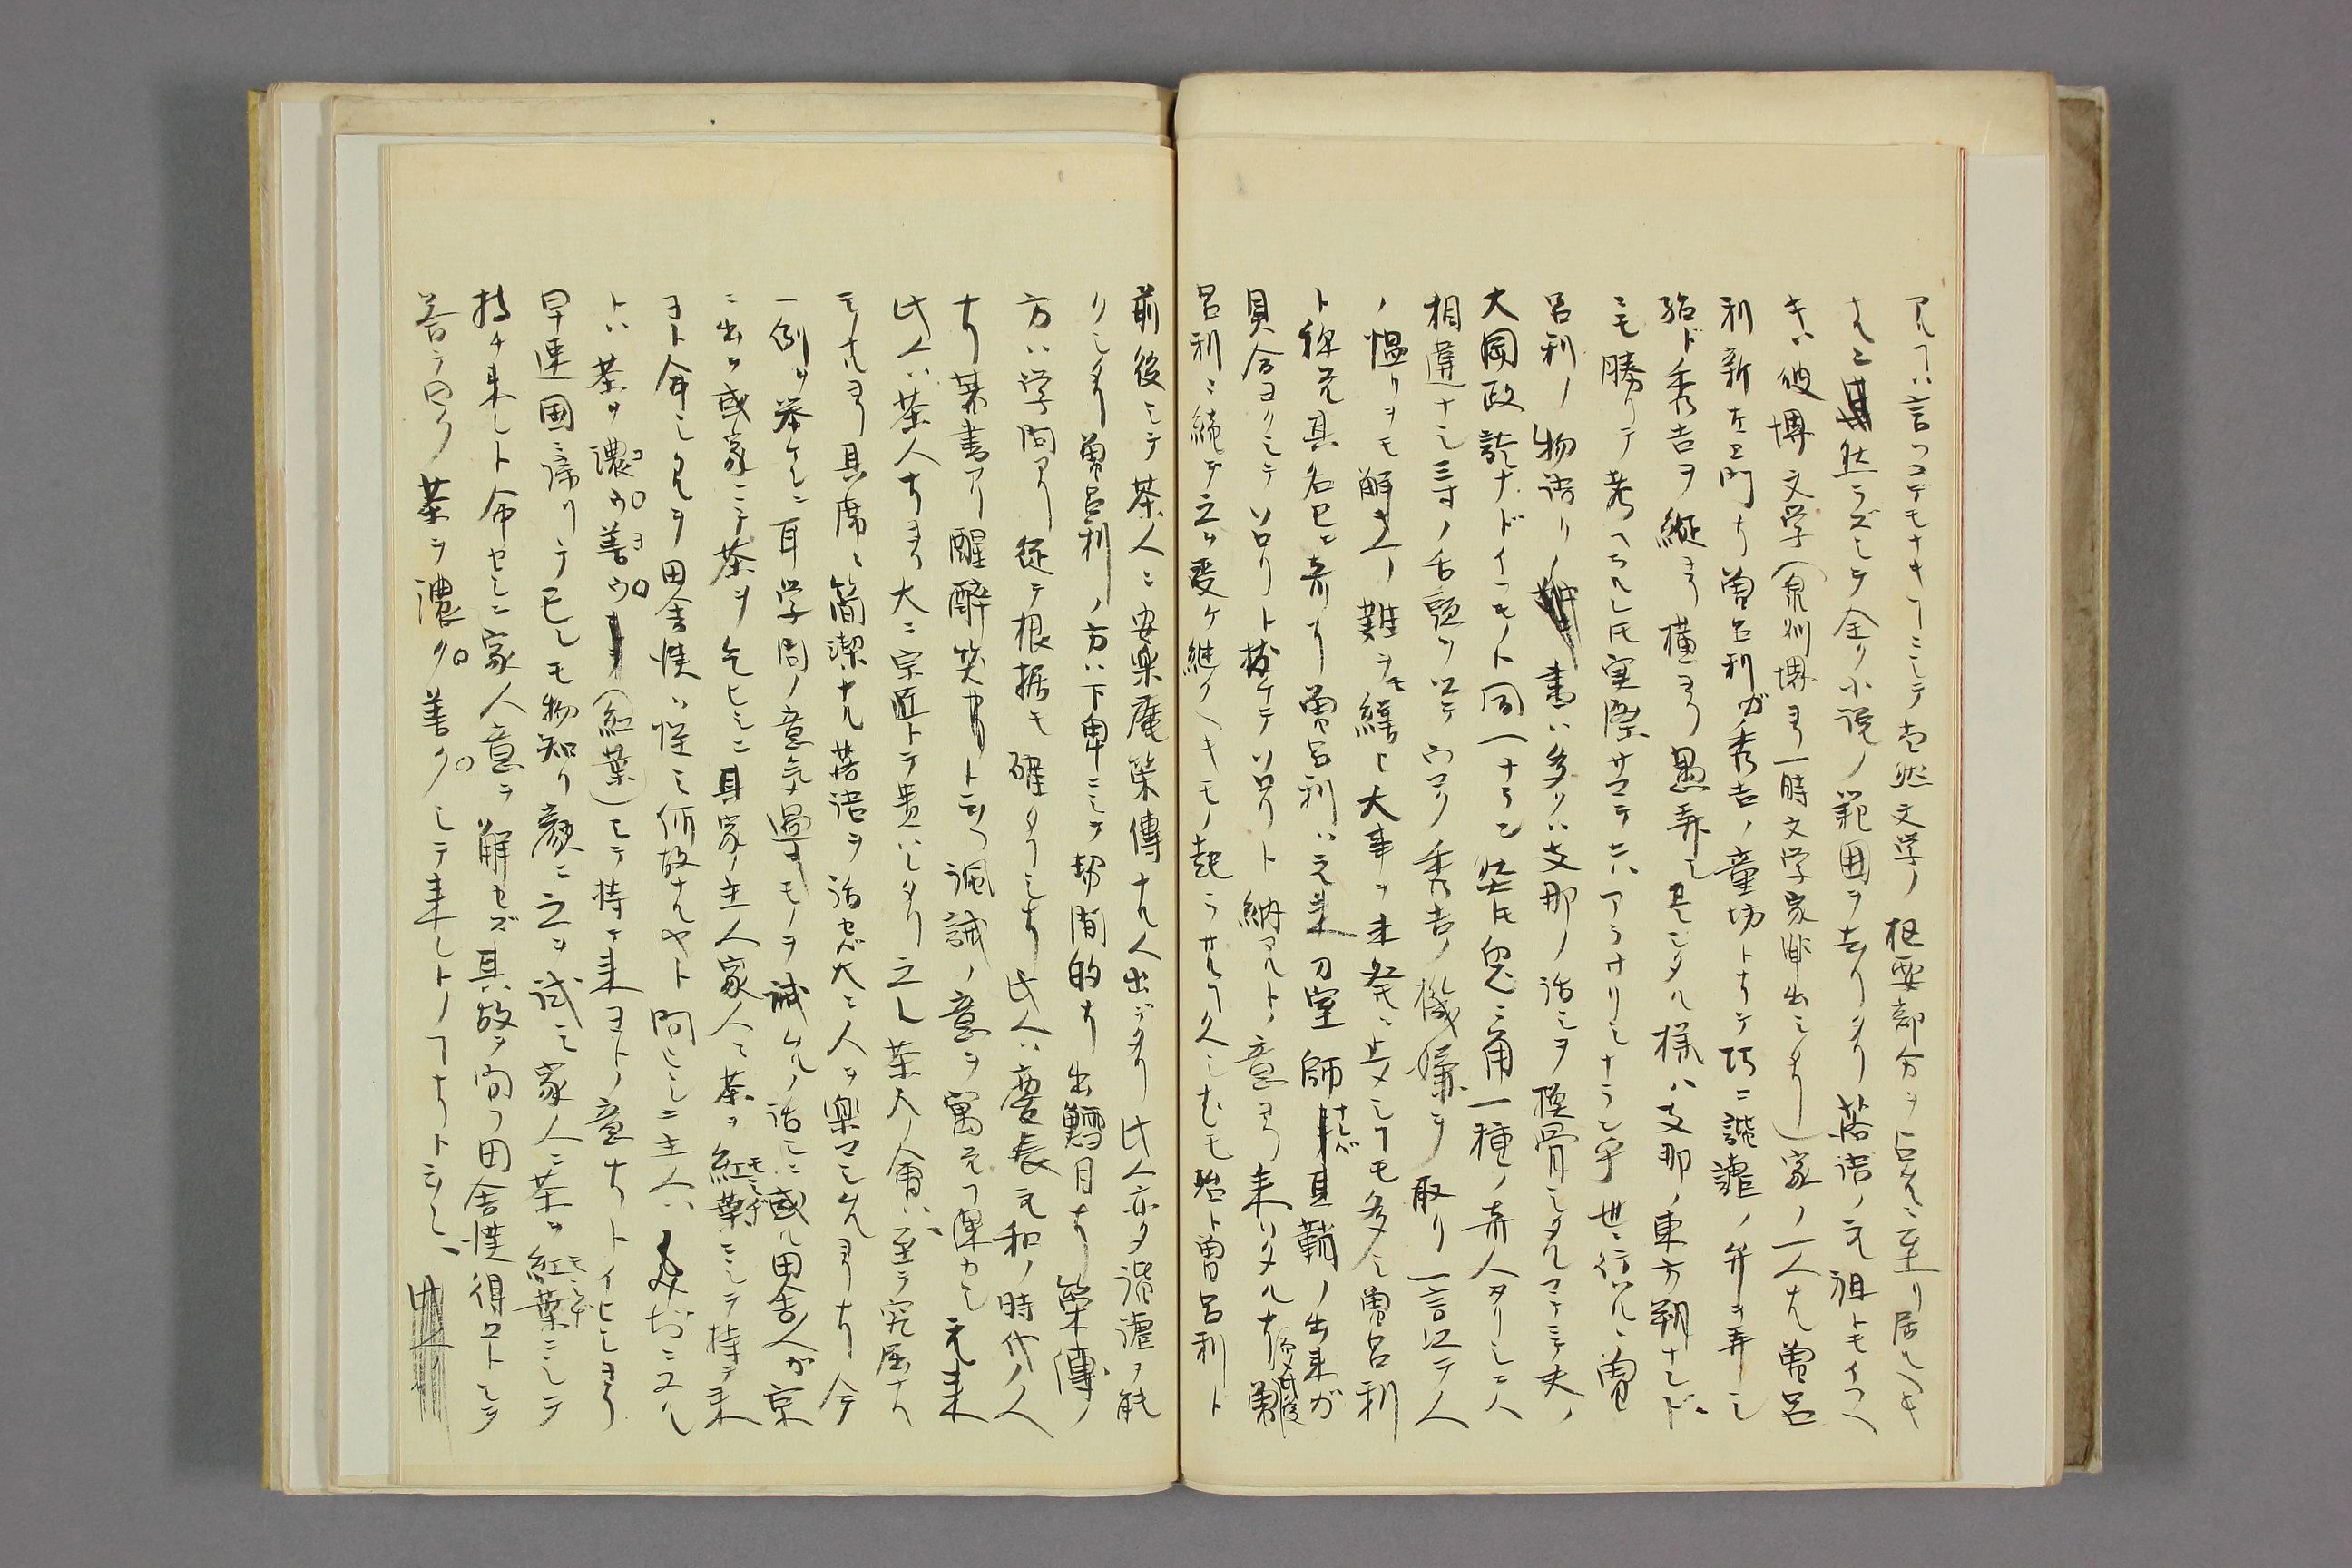 アルヿハ言フマデモナキヿニシテ当然文学ノ枢要部分ヲ占ルニ至リ居ルヘキ
ナルニ然ラズシテ全ク小説ノ範囲ヲ去リタリ落語ノ元祖トモイフヘ
キハ彼堺文学(泉州堺ヨリ一時文学家輩出シタリ)家ノ一人ナル曽呂
利新左エ門ナリ曽呂利ガ秀吉ノ童坊トナリテ巧ニ諧謔ノ弁ヲ弄シ
殆ド秀吉ヲ縦ヨリ横ヨリ愚弄シタル様ハ支那ノ東方朔ナンド
ニモ勝リテ考ヘラルレ𪜈実際サマテニハアラサリシナラン乎世ニ行ハルヽ曽
呂利ノ物語リノ書ハ多クハ支那ノ話シヲ換骨シタルマテニテ夫ノ
大岡政談ナドイフモノト同一ナラン然𪜈兎ニ角一種ノ奇人タリシニハ
相違ナシ三寸ノ舌頭ヲ以テウマク秀吉ノ機嫌ヲ取リ一言以テ人
ノ慍リヲモ解キ人ノ難ヲモ繕ヒ大事ヲ未発ニ止メシヿモ多シ曽呂利
ト称ルハ其名已ニ奇ナリ曽呂利ハ元来刀室師ナレバ其鞘ノ出来ガ
具合ヨクシテソロリト抜ケテソロリト納マルトノ意ヨリ来リタルナリ曽
呂利ニ継テ之ヲ受ケ継クヘキモノ起ラサルヿ久シセモ殆ト曽呂利ト
前後シテ茶人ニ安楽庵策傳ナル人出デタリ此人亦タ諧謔ヲ能
クシタリ曽呂利ノ方ハ下卑ニシテ幇間的ナリ出鱈目ナリ策傳ノ
方ハ学問アリ従テ根据モ確タリシナリ此人ハ慶長元和ノ時代ノ人
ナリ著書アリ醒酔笑ト云フ諷誡ノ意ヲ寓スルヿ深カシ元来
此人ハ茶人ナリヨリ大ニ宗匠トテ貴ハレタリ之レ茶人ノ會ハ至テ窮屈ナル
モノナルヨリ其席ニ簡潔ナル落語ヲ話セバ大ニ人ヲ楽マシムルヨリナリ今
一例ヲ挙ケンニ耳学問ノ意気過キモノヲ誡ムルノ話シニ或ル田舎人ガ京
ニ出ヅ或家ニテ茶ヲ乞ヒシニ其家ノ主人家人ニ茶ヲ紅葉モミヂニシテ持テ来
ヨト命シタルヲ田舎漢ハ怪シ何故ナルヤト問ヒシニ主人ハもみぢニスル
トハ茶ヲ濃コウ善ヨウ(紅葉)シテ持テ来ヨトノ意ナリトイヒシヨリ
早速国ニ帰リテ已レモ物知リ顔ニ之ヲ試ミ家人ニ茶ヲ紅葉モミヂニシテ
持チ来レト命セシニ家人意ヲ解セズ其故ヲ問フ田舎漢得ヨトシテ
答テ曰ク茶ヲ濃ク善クシテ来レトノヿナリト云シ